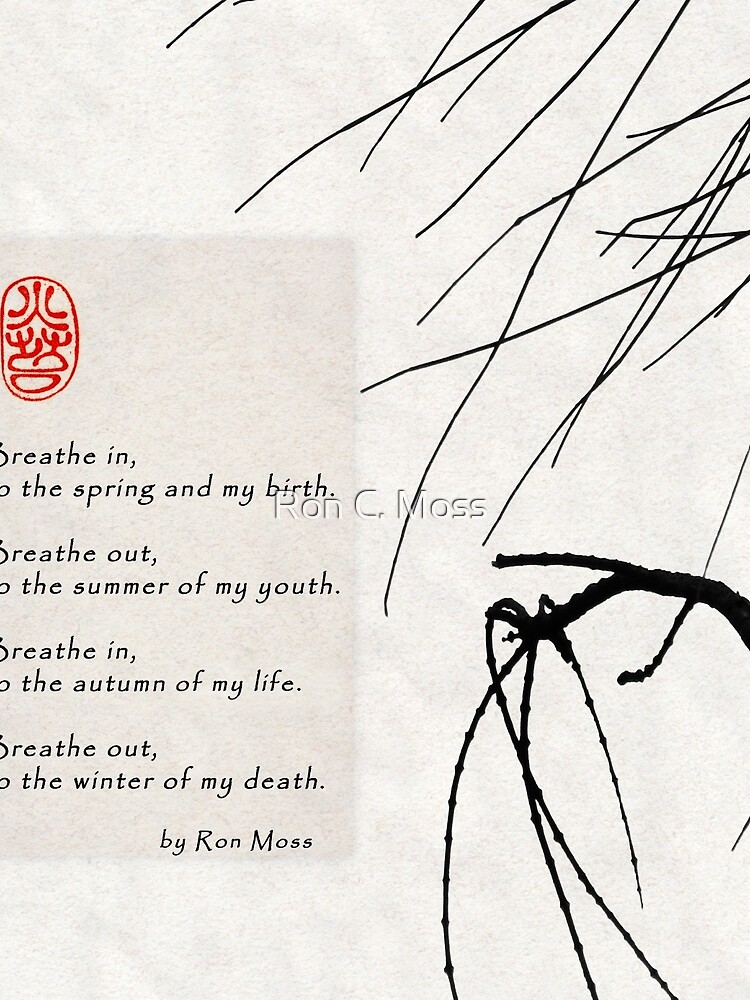 Breathe in,
o the spring and my birth.
Ron C. Moss
Breathe out,
o the summer of my youth.
Breathe in,
o the autumn of my life.
Breathe out,
o the winter of my death.
by Ron Moss